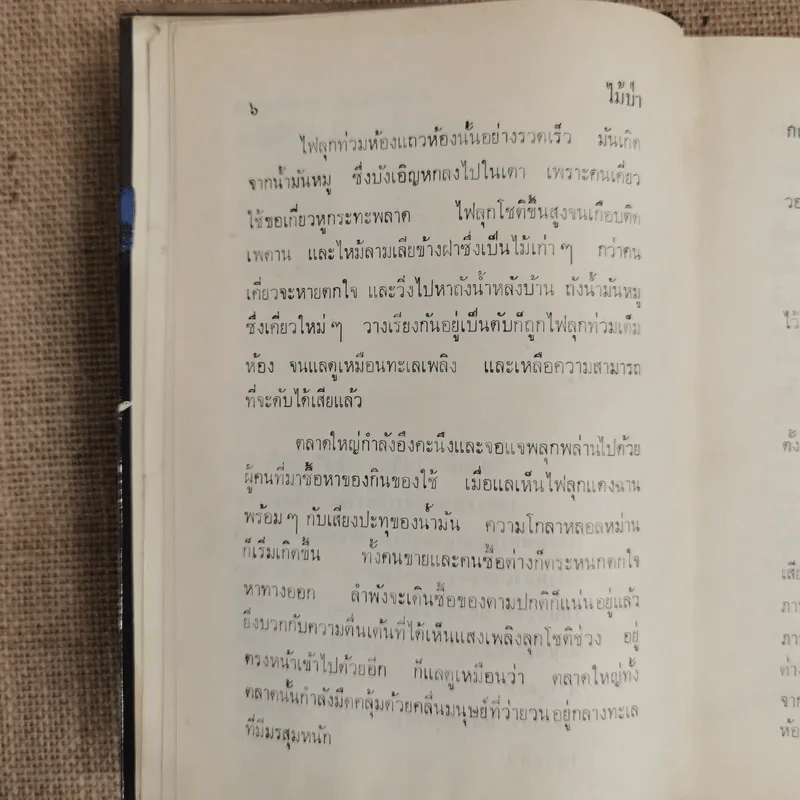 ๖ ไม้ป่า
ไฟลุกท่วมห้องแถวห้องนั้นอย่างรวดเร็ว มันเกิด
จากน้ำมันหมู ซึ่งบังเอิญหกลงไปในเตา เพราะคนเคี่ยว
ใช้ขอเกี่ยวหูกระทะพลาด ไฟลุกโชติขึ้นสูงจนเกือบติด
เพดาน และไหม้ลามเลียข้างฝาซึ่งเป็นไม้เก่า ๆ กว่าคน
เคี่ยวจะหายตกใจ และวิ่งไปหาถังน้ำหลังบ้าน ถังน้ำมันหมู
ซึ่งเคี่ยวใหม่ ๆ วางเรียงกันอยู่เป็นตับก็ถูกไฟลุกท่วมเต็ม
ห้อง จนแลดูเหมือนทะเลเพลิง และเหลือความสามารถ
ที่จะดับได้เสียแล้ว
ตลาดใหญ่กำลังอึงคะนึงและจอแจพลุกพล่านไปด้วย
ผู้คนที่มาซื้อหาของกินของใช้ เมื่อแลเห็นไฟลุกแดงฉาน
พร้อม ๆ กับเสียงปะทุของน้ำมัน ความโกลาหลอลหม่าน
ก็เริ่มเกิดขึ้น ทั้งคนขายและคนซื้อต่างก็ตระหนกตกใจ
หาทางออก ลำพังจะเดินซื้อของตามปกติก็แน่นอยู่แล้ว
ยิ่งบวกกับความตื่นเต้นที่ได้เห็นแสงเพลิงลุกโชติช่วง อยู่
ตรงหน้าเข้าไปด้วยอีก ก็แลดูเหมือนว่า ตลาดใหญ่ทั้ง
ตลาดนั้นกำลังมืดคลุ้มด้วยคลื่นมนุษย์ที่ว่ายวนอยู่กลางทะเล
ที่มีมรสุมหนัก
ไว้
ต่าง